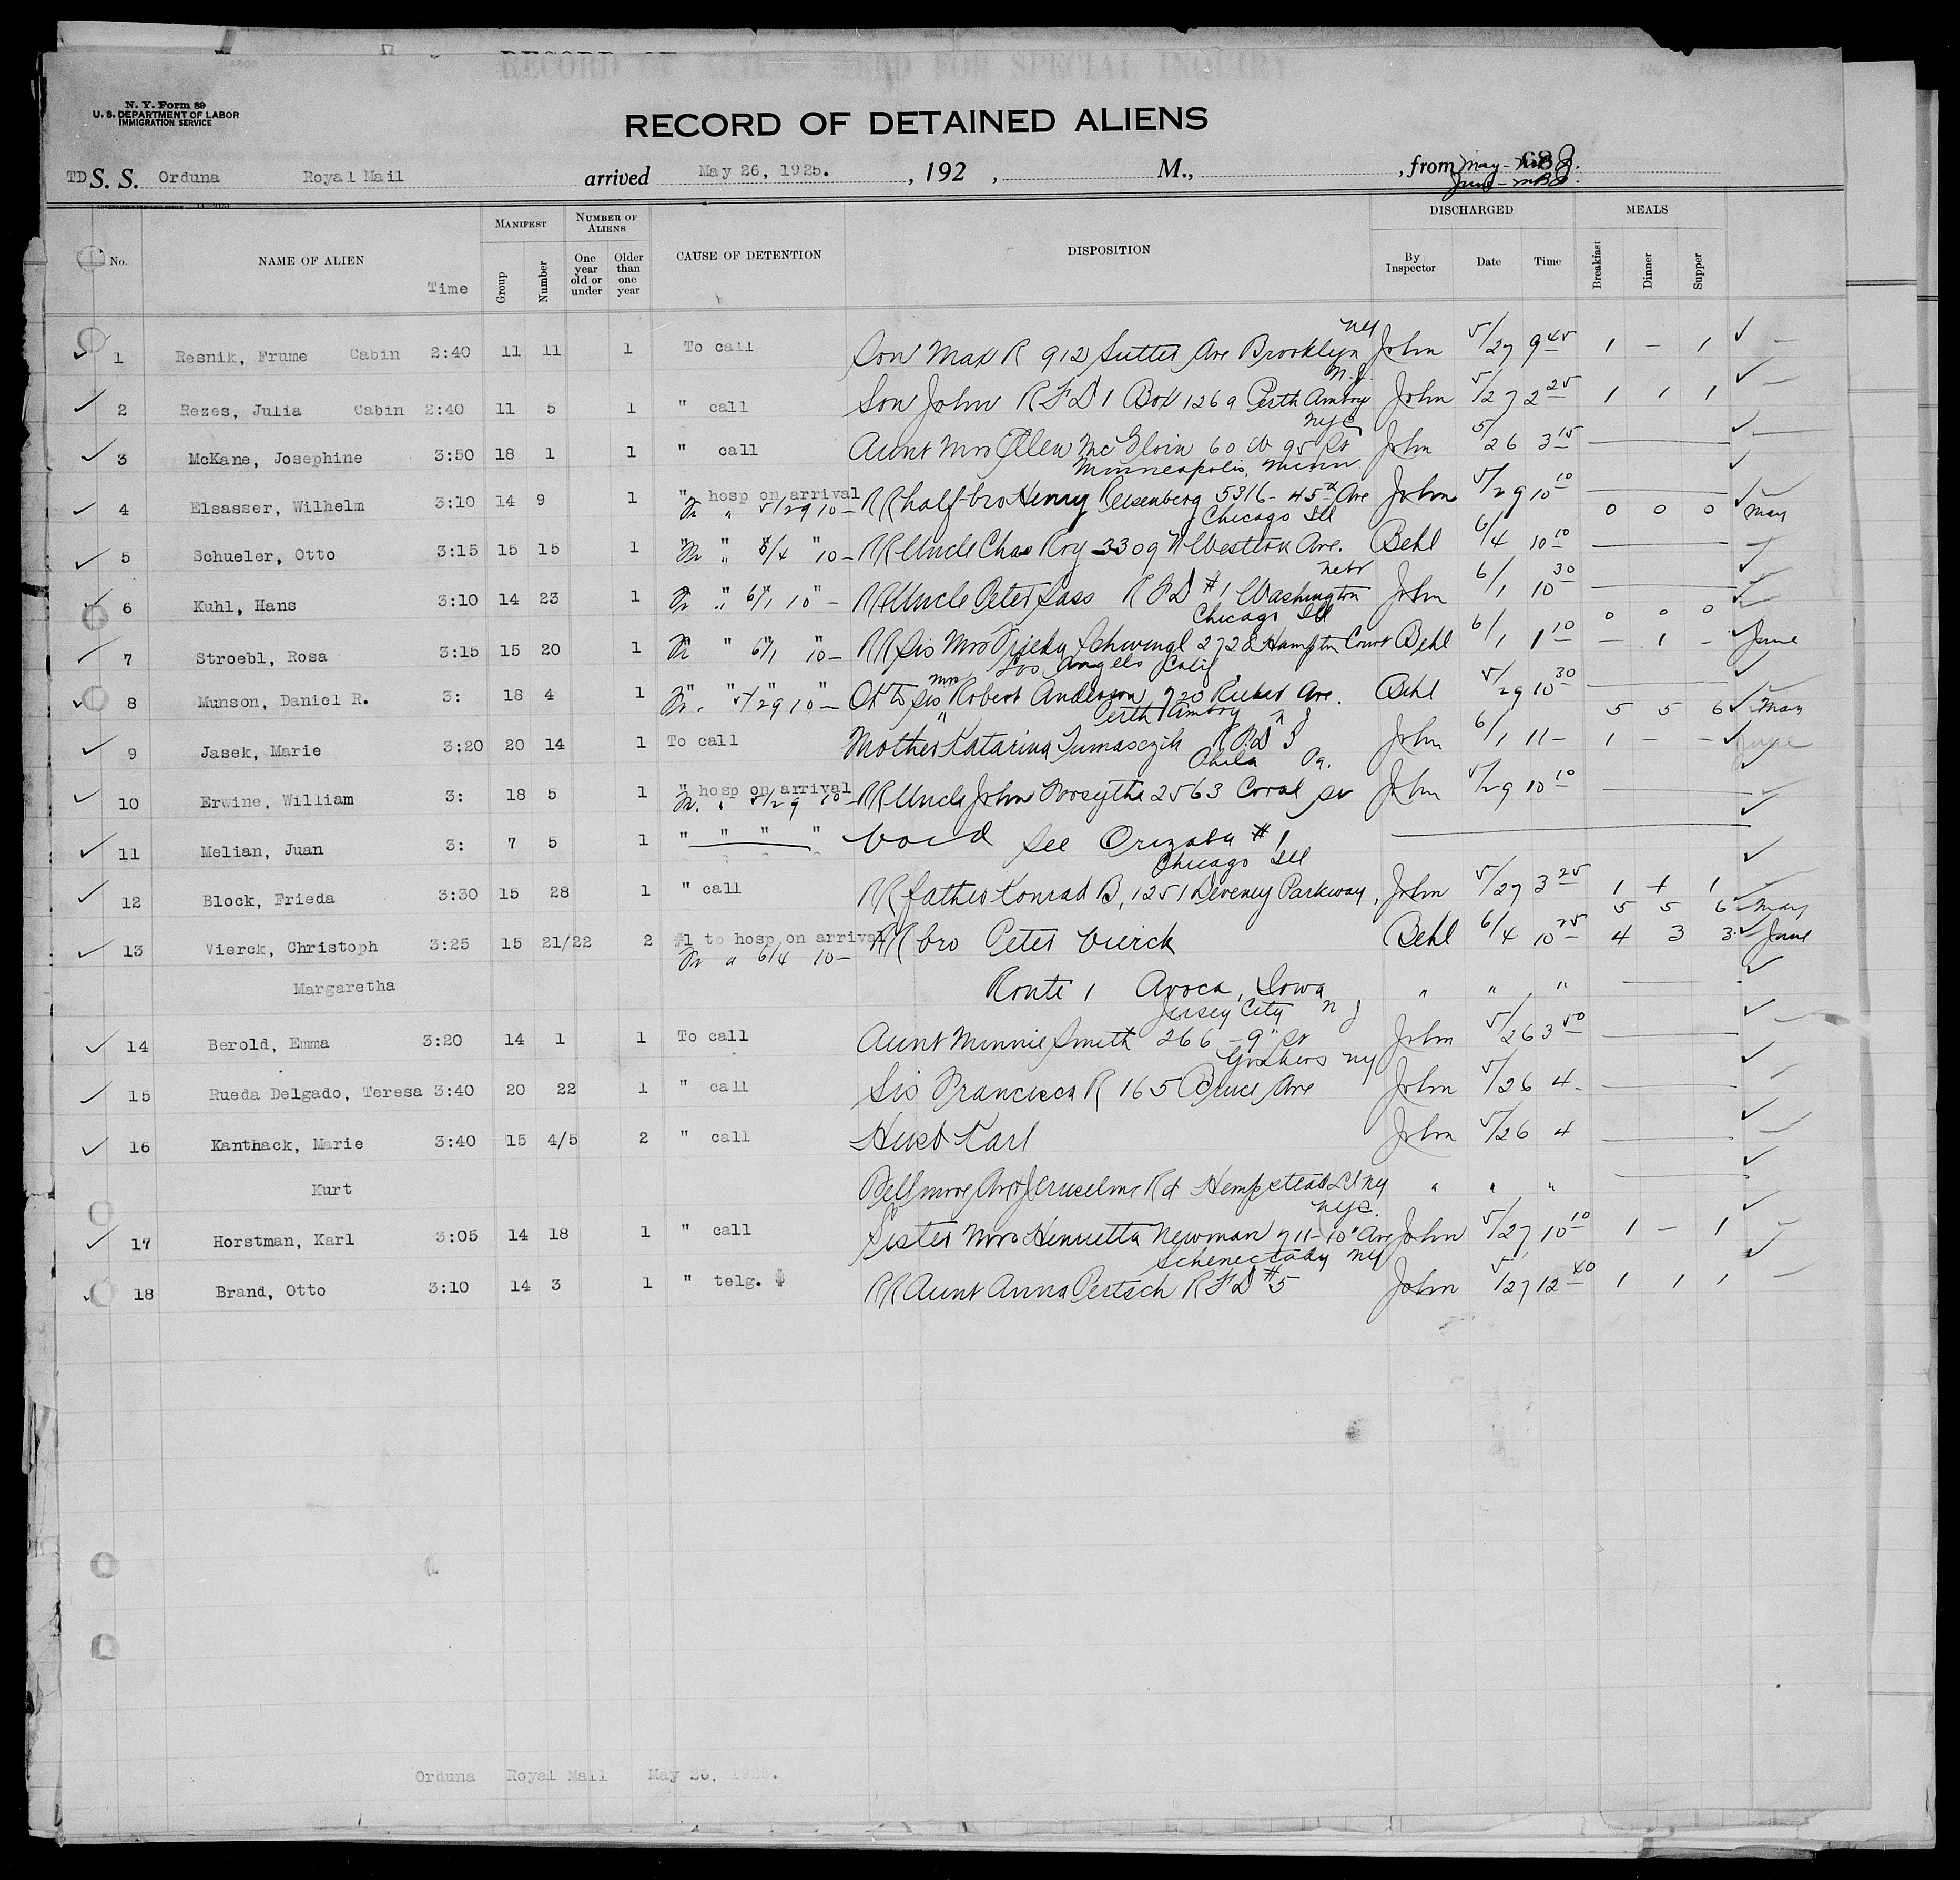 RECORD OF ALIENS HELD FOR SPECIAL INQUIRY
N. Y. Form 89
U. S. DEPARTMENT OF LABOR
IMMIGRATION SERVICE
RECORD OF DETAINED ALIENS
TD S. S. Orduna Royal Mail arrived May 26, 1925. , 192 , M., , from May - 68
June - MBJ.
No. NAME OF ALIEN Time MANIFEST Group Number NUMBER OF ALIENS One year old or under Older than one year CAUSE OF DETENTION DISPOSITION DISCHARGED By Inspector Date Time MEALS Breakfast Dinner Supper
NY
✓ 1 Resnik, Frume Cabin 2:40 11 11 1 To call Son Max R 912 Sutter Ave Brooklyn John 5/27 9 45 1 — 1 ✓ —
N.J.
✓ 2 Rezes, Julia Cabin 2:40 11 5 1 " call Son John RFD 1 Box 126a Perth Amboy John 5/27 2 25 1 1 1 ✓ —
NYC
✓ 3 McKane, Josephine 3:50 18 1 1 " call Aunt Mrs Ellen McGloin 60 W 95 St John 5/26 3 15 — ✓ —
Minneapolis, Minn.
✓ 4 Elsasser, Wilhelm 3:10 14 9 1 " hosp on arrival RR half-bro Henry Reisenberg 5316 - 45th Ave John 5/29 10 10 — ✓
Fr " 5/29 10 —
Chicago Ill 0 0 0 ✓ May
✓ 5 Schueler, Otto 3:15 15 15 1 Fr " 6/4 "10 — RR Uncle Chas Roy 3309 N Western Ave. Behl 6/4 10 10 — ✓
Nebr
✓ 6 Kuhl, Hans 3:10 14 23 1 Fr " 6/1 10 — RR Uncle Peter Sass RFD #1 Washington John 6/1 10 30 — ✓
Chicago Ill 0 0 0
✓ 7 Stroebl, Rosa 3:15 15 20 1 Fr " 6/1 10 — RR Sis Mrs Schwingl 2728 Hampton Court Behl 6/1 1 10 — 1 - ✓ June
Los Angeles Calif
✓ 8 Munson, Daniel R. 3: 18 4 1 Fr. " 5/29 10 — Ok to sis Mrs Robert Anderson 920 Ave. Behl 5/29 10 30 — ✓
Perth Amboy N J 5 5 6 ✓ May
✓ 9 Jasek, Marie 3:20 20 14 1 To call Mother Katarina RFD 3 John 6/1 11 — 1 — — ✓ June
Phila Pa.
✓ 10 Erwine, William 3: 18 5 1 " hosp on arrival RR Uncle John Forsythe 2563 Coral St John 5/29 10 10 — ✓
Fr. " 5/29 10 —
✓ 11 Melian, Juan 3: 7 5 1 " " " " Void See Orizaba #1 — ✓
Chicago Ill
✓ 12 Block, Frieda 3:30 15 28 1 " call RR father Konrad B, 1251 Deveney Parkway, John 5/27 3 25 1 1 1 ✓
5 5 6 ✓ May
✓ 13 Vierck, Christoph 3:25 15 21/22 2 #1 to hosp on arrival RR bro Peter Vierck Behl 6/4 10 25 4 3 3 ✓ June
Fr " 6/4 10 —
Margaretha Route 1 Avoca, Iowa " " " — ✓
Jersey City N J
✓ 14 Berold, Emma 3:20 14 1 1 To call Aunt Minnie Smith 266 - 9" St John 5/26 3 50 — ✓ —
Yonkers NY
✓ 15 Rueda Delgado, Teresa 3:40 20 22 1 " call Sis Francisca R 165 Bruce Ave John 5/26 4 - — ✓
✓ 16 Kanthack, Marie 3:40 15 4/5 2 " call Husb Karl John 5/26 4 — ✓
Kurt Bellmore Ave Jeruselme Rd Hempstead LI NY " " " — ✓
NYC.
✓ 17 Horstman, Karl 3:05 14 18 1 " call Sister Mrs Henrietta Newman 911 - 10" Ave John 5/27 10 10 1 — 1 ✓
Schenectady NY
✓ 18 Brand, Otto 3:10 14 3 1 " telg. RR Aunt Anna Pertsch RFD #5 John 5/27 12 40 1 1 1 ✓ —
Orduna Royal Mail May 26, 1925.